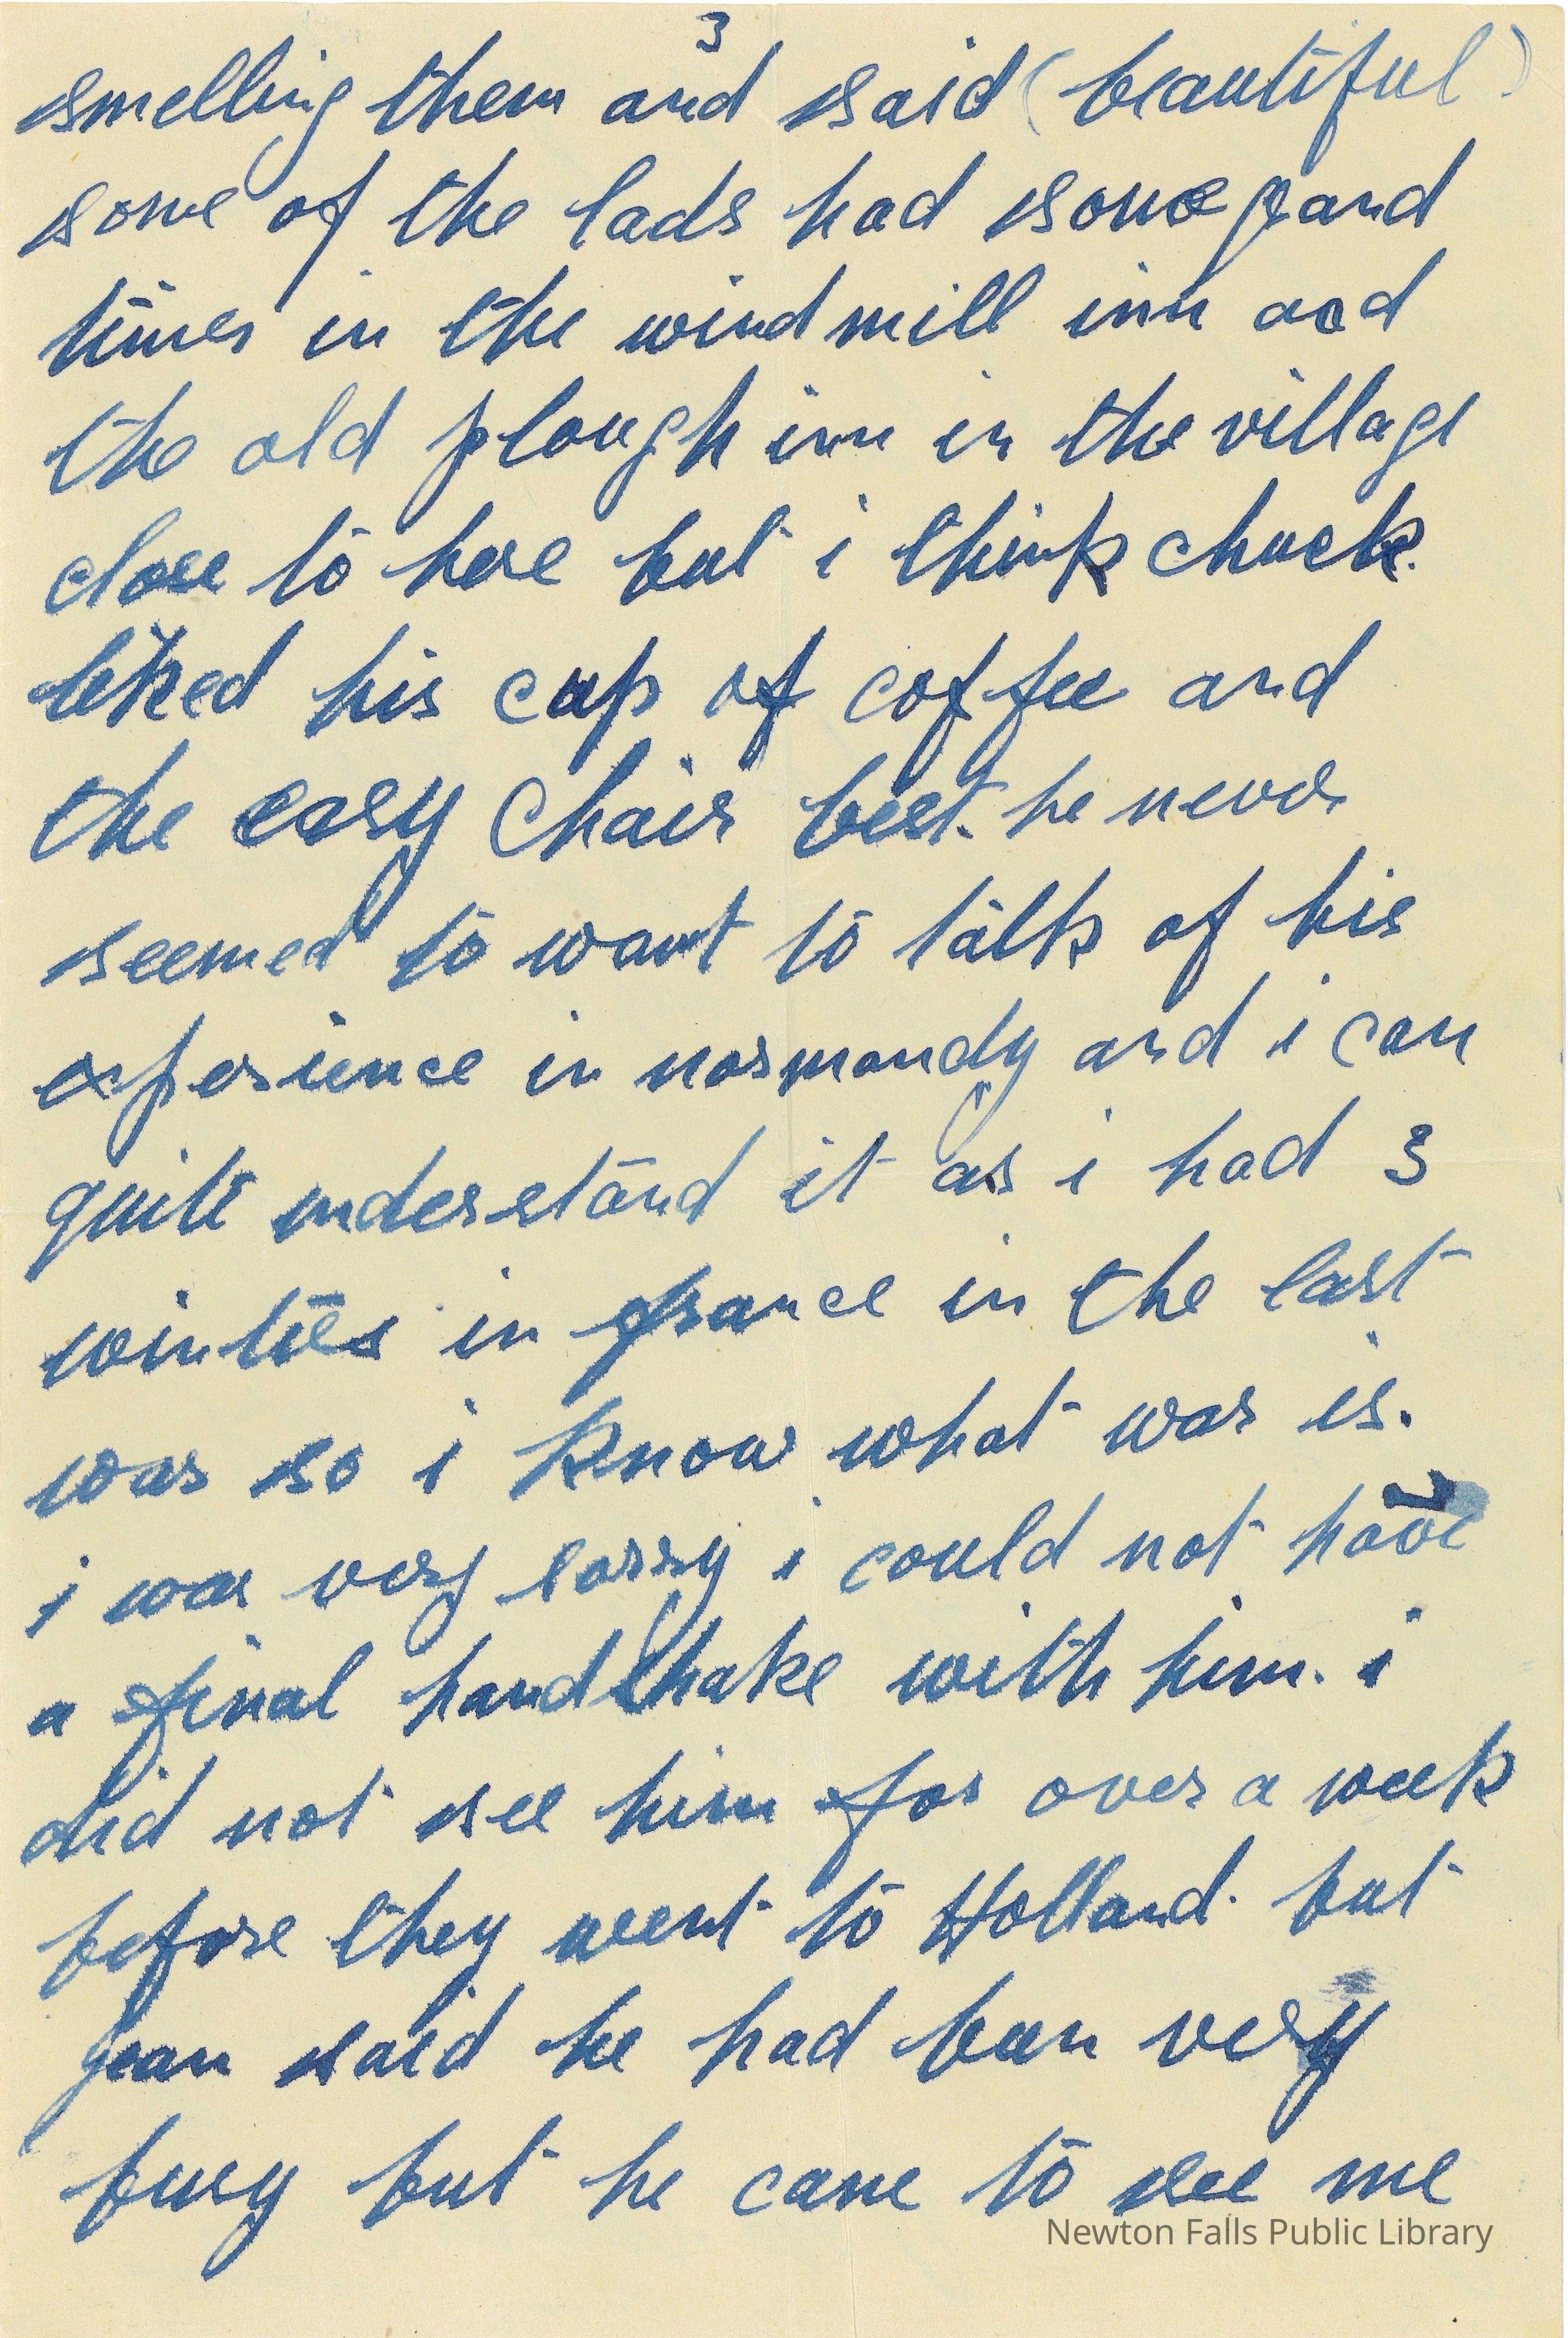 3
smelling them and said (beautiful)
some of the lads had some grand
times in the windmill inn and
the old plough inn in the village
close to here but i think chuck
liked his cup of coffee and
the easy chair best. he never
seemed to want to talk of his
experience in normandy and i can
quite understand it as i had 3
winters in france in the last
war so i know what war is.
i was very sorry i could not have
a final handshake with him. i
did not see him for over a week
before they went to Holland. but
jean said he had been very
busy but he came to see me
Newton Falls Public Library